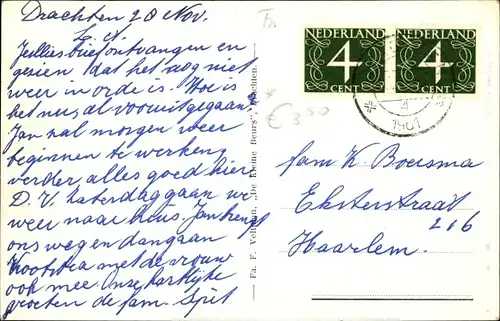 Drachten 28 Nov.
L. A.
Jullies brief ontvangen en
gezien dat het oog niet
weer in orde is. Hoe is
het nu, al vooruitgegaan?
Jan zal morgen weer
beginnen te werken
verder alles goed hier
D.V. zaterdag gaan we
weer naar huis. Jan brengt
ons weg en dan gaan
met de vrouw
ook mee. Onze hartelijke
groeten de fam. Spit
Fa. F. Veltman, „De Kleine Beurs", Drachten.
NEDERLAND
4
CENT
NEDERLAND
4
CENT
4
1961
€ 3,50
fam K. Boersma
Eksterstraat
216
Haarlem.